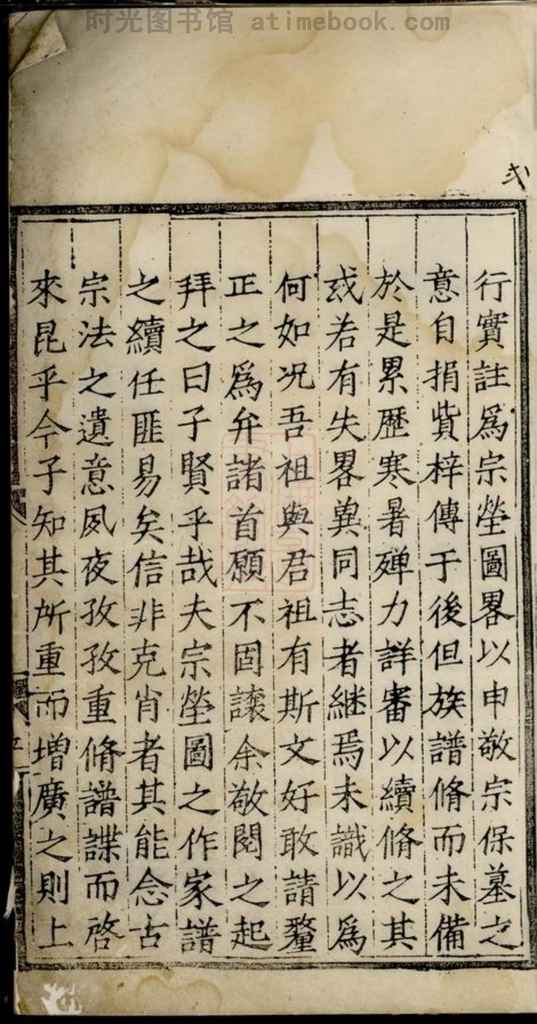 时光图书馆 atimebook.com
行實註爲宗塋圖畧以申敬宗保墓之
意自捐貲梓傳于後但族譜脩而未備
於是累歷寒暑殫力詳審以續脩之其
或若有失畧冀同志者継焉未識以爲
何如况吾祖與君祖有斯文好敢請釐
正之爲弁諸首願不固讓余敬閱之起
拜之曰子賢乎哉夫宗塋圖之作家譜
之續任匪易矣信非克肖者其能念古
宗法之遺意夙夜孜孜重脩譜諜而啓
來昆乎今子知其所重而增廣之則上